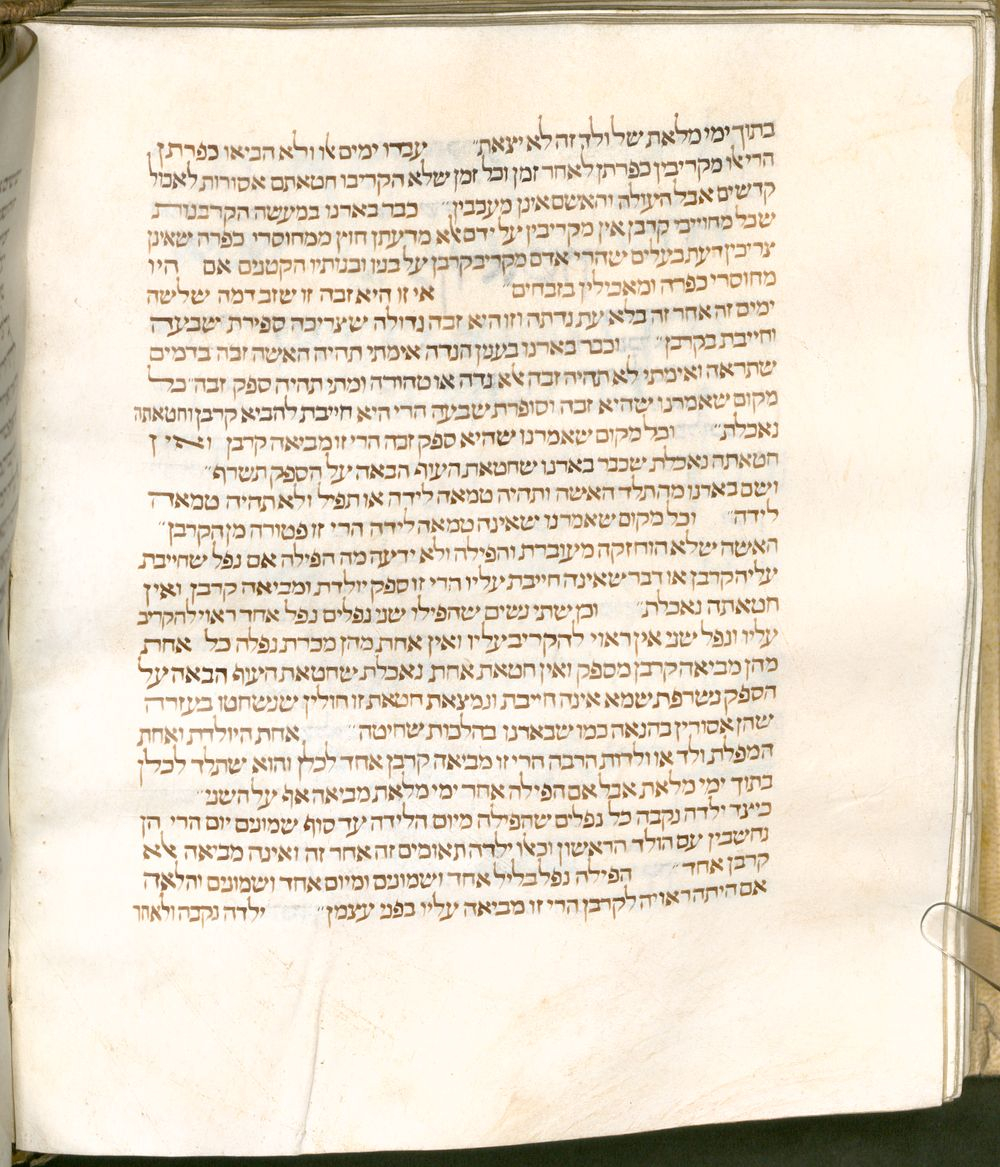 בתוך ימי מלאת של ולד זה לא יצאת״ עברו ימים אלו ולא הביאו כפרתן
הרי אלו מקריבין כפרתן לאחר זמן וכל זמן שלא הקריבו חטאתם אסורות לאכול
קדשים אבל העולה והאשם אינן מעכבין״ כבר בארנו במעשה הקרבנות
שכל מחוייבי קרבן אין מקריבין על ידם אלא מדעתן חוץ ממחוסרי כפרה שאינן
צריכין דעת בעלים שהרי אדם מקריב קרבן על בנו ובנותיו הקטנים אם היו
מחוסרי כפרה ומאכילין בזבחים״ אי זו היא זבה זו שזב דמה שלישה
ימים זה אחר זה בלא עת נדתה וזו היא זבה גדולה שצריכה ספירת שבעה
וחייבת בקרבן״ וכבר בארנו בענין הנדה אימתי תהיה האשה זבה בדמים
שתראה ואימתי לא תהיה זבה אלא נדה או טהורה ומתי תהיה ספק זבה״ כל
מקום שאמרנו שהיא זבה וסופרת שבעה הרי היא חייבת להביא קרבן וחטאתה
נאכלת״ וכל מקום שאמרנו שהיא ספק זבה הרי זו מביאה קרבן ואין
חטאתה נאכלת שכבר בארנו שחטאת העוף הבאה על הספק תשרף״
ושם בארנו מה תלד האשה ותהיה טמאה לידה או תפיל ולא תהיה טמאה
לידה״ וכל מקום שאמרנו שאינה טמאה לידה הרי זו פטורה מן הקרבן״
האשה שלא הוחזקה מעוברת והפילה ולא ידעה מה הפילה אם נפל שחייבת
עליה קרבן או דבר שאינה חייבת עליו הרי זו ספק יולדת ומביאה קרבן ואין
חטאתה נאכלת״ וכן שתי נשים שהפילו שני נפלים נפל אחד ראוי להקריב
עליו ונפל שני אין ראוי להקריב עליו ואין אחת מהן מכרת נפלה כל אחת
מהן מביאה קרבן מספק ואין חטאת אחת נאכלת שחטאת העוף הבאה על
הספק נשרפת שמא אינה חייבת ונמצאת חטאת זו חולין שנשחטו בעזרה
שהן אסורין בהנאה כמו שבארנו בהלכות שחיטה״ אחת היולדת ואחת
המפלת ולד או ולדות הרבה הרי זו מביאה קרבן אחד לכלן והוא שתלד לכלן
בתוך ימי מלאת אבל אם הפילה אחר ימי מלאת מביאה אף על השני״
כיצד ילדה נקבה כל נפלים שהפילה מיום הלידה עד סוף שמונים יום הרי הן
נחשבין עם הולד הראשון וכאלו ילדה תאומים זה אחר זה ואינה מביאה אלא
קרבן אחד״ הפילה נפל בליל אחד ושמונים ומיום אחד ושמונים והלאה
אם היתה ראויה לקרבן הרי זו מביאה עליו בפני עצמו״ ילדה נקבה ולאחר